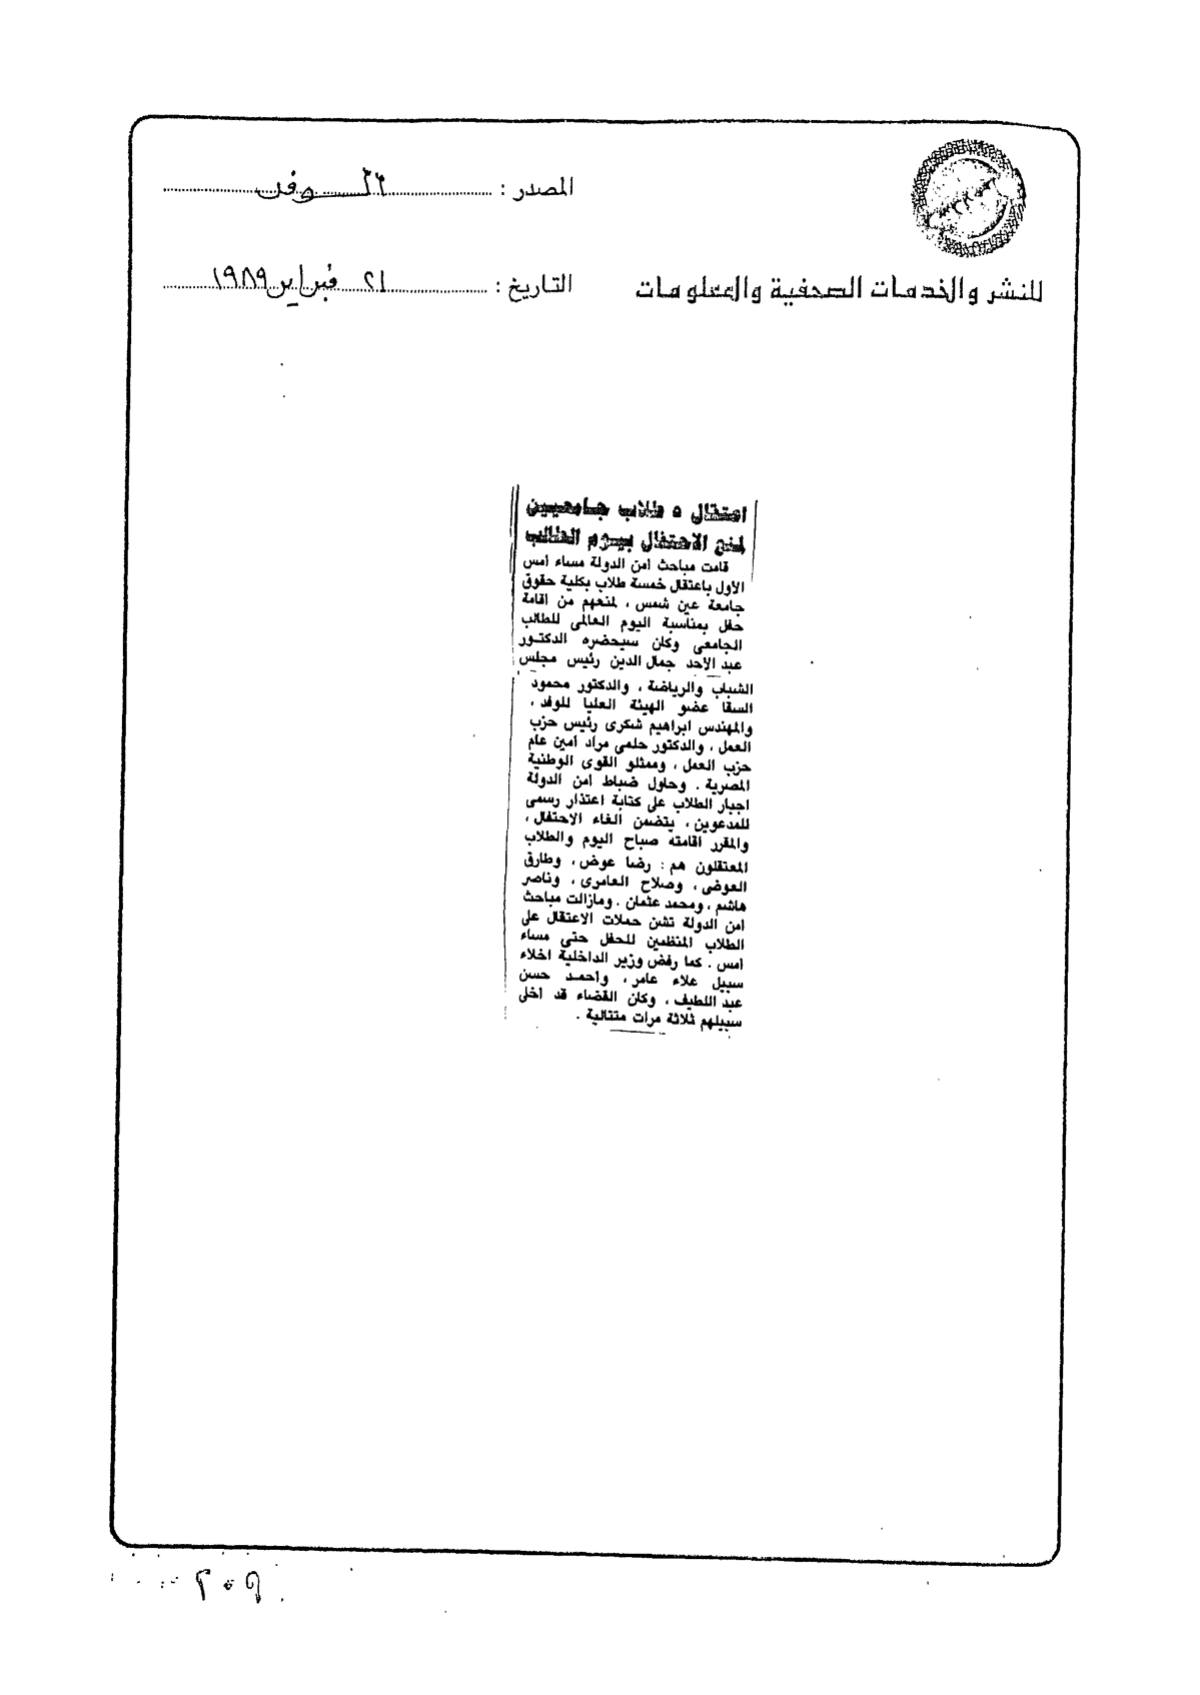 المصدر : الوفد
للنشر والخدمات الصحفية والمعلومات
التاريخ : ٢١ فبراير ١٩٨٩
اعتقال ٥ طلاب جامعيين
لمنع الاحتفال بيوم الطالب
قامت مباحث امن الدولة مساء امس
الاول باعتقال خمسة طلاب بكلية حقوق
جامعة عين شمس ، لمنعهم من اقامة
حفل بمناسبة اليوم العالمى للطالب
الجامعى وكان سيحضره الدكتور
عبد الاحد جمال الدين رئيس مجلس
الشباب والرياضة ، والدكتور محمود
السقا عضو الهيئة العليا للوفد ،
والمهندس ابراهيم شكرى رئيس حزب
العمل ، والدكتور حلمى مراد امين عام
حزب العمل ، وممثلو القوى الوطنية
المصرية . وحاول ضباط امن الدولة
اجبار الطلاب على كتابة اعتذار رسمى
للمدعوين ، يتضمن الغاء الاحتفال ،
والمقرر اقامته صباح اليوم والطلاب
المعتقلون هم : رضا عوض ، وطارق
العوضى ، وصلاح العامرى ، وناصر
هاشم ، ومحمد عثمان . ومازالت مباحث
امن الدولة تشن حملات الاعتقال على
الطلاب المنظمين للحفل حتى مساء
امس . كما رفض وزير الداخلية اخلاء
سبيل علاء عامر ، واحمد حسن
عبد اللطيف ، وكان القضاء قد اخلى
سبيلهم ثلاثة مرات متتالية .
٢٠٩